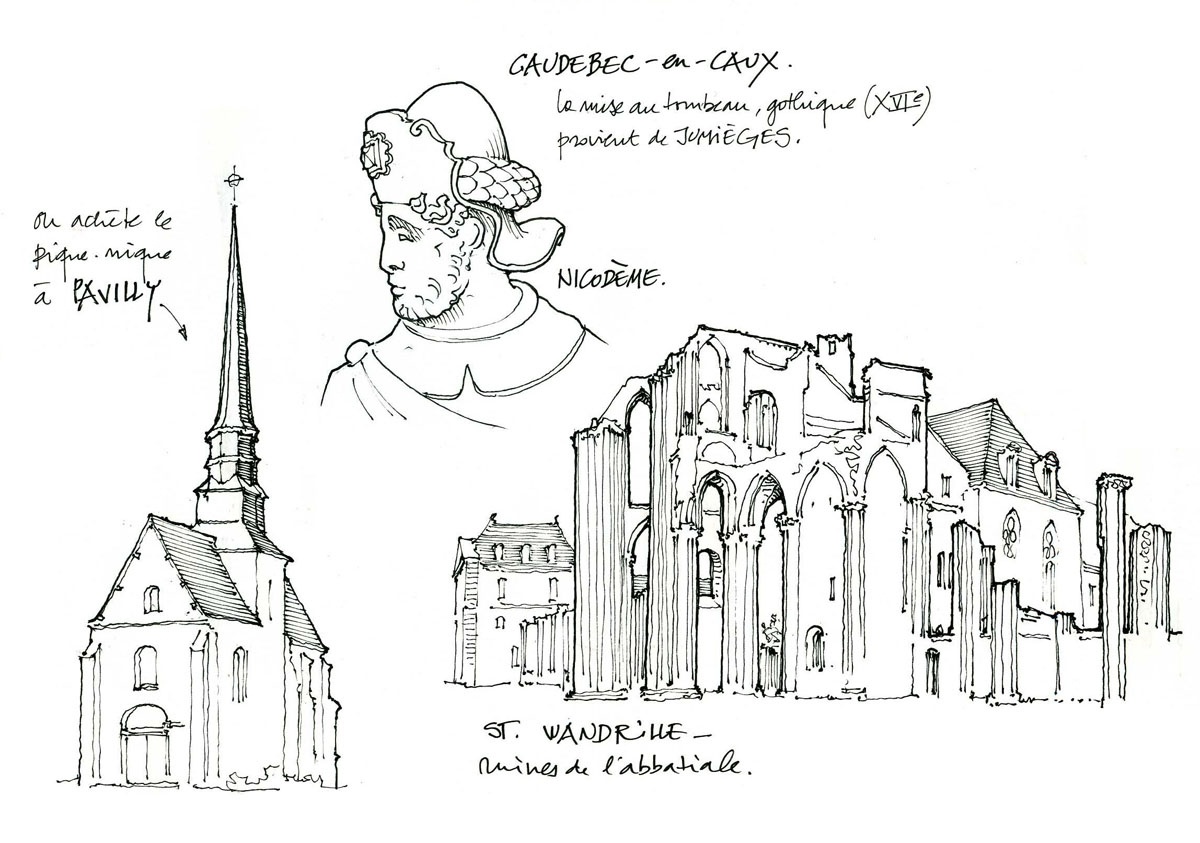 CAUDEBEC-en-CAUX.
la mise au tombeau, gothique (XVIe)
provient de JUMIÈGES.
on achète le
pique-nique
à PAVILLY
NICODÈME.
ST. WANDRILLE -
ruines de l'abbatiale.